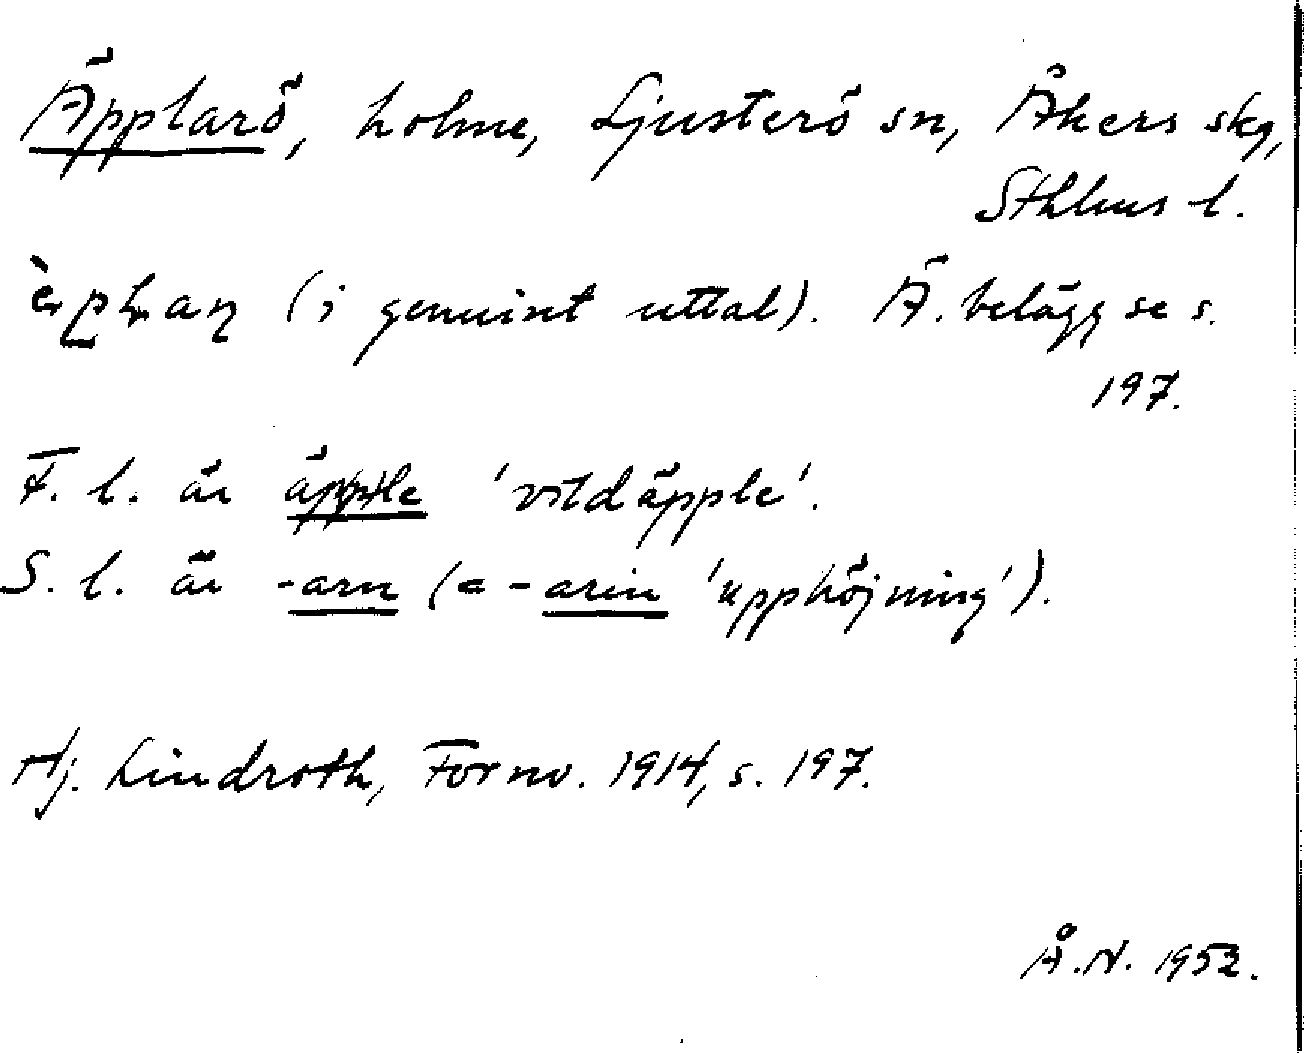 Äpplarö, holme, Ljusterö sn, Åkers skg,
Sthlms l.
(i genuint uttal). Ä. belägg se s.
197.
F. l. är äpple 'vildäpple'.
S. l. är -arn (= -arin 'upphöjning').
Hj. Lindroth, Fornv. 1914, s. 197.
Å.N. 1952.